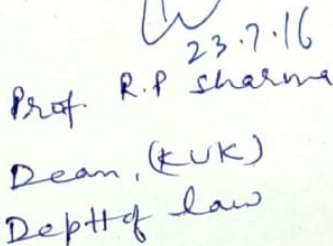 23.7.16
Prof. R.P Sharma
Dean, (KUK)
Deptt of law